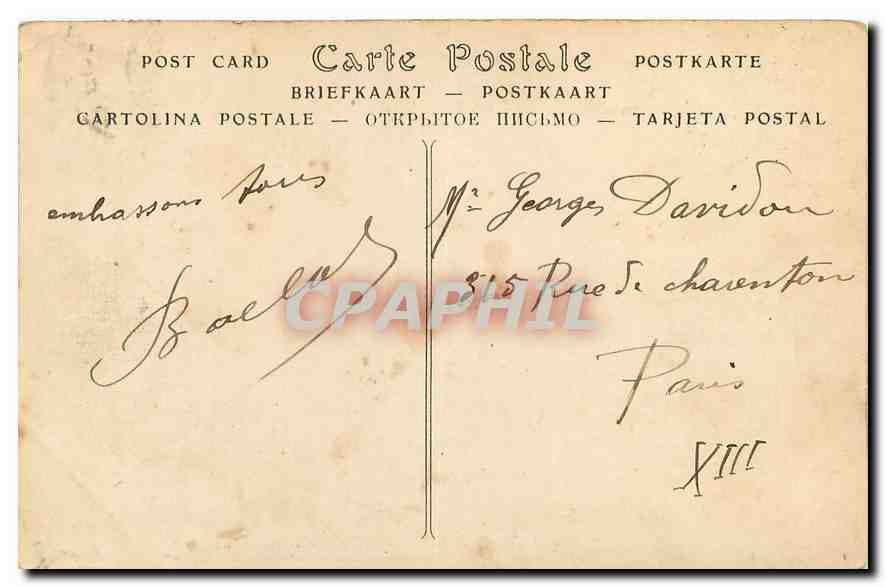 POST CARD Carte Postale POSTKARTE
BRIEFKAART — POSTKAART
CARTOLINA POSTALE — ОТКРЫТОЕ ПИСЬМО — TARJETA POSTAL
embrassons tous
Mr Georges Davidon
315 Rue de charenton
Paris
XIII
CPAPHIL